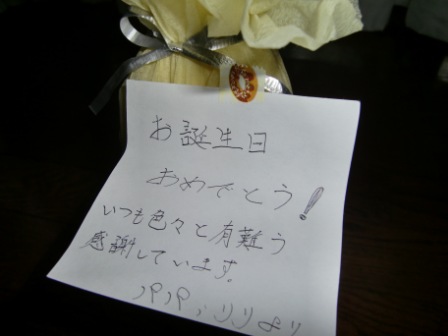 お誕生日
おめでとう!
いつも色々と有難う
感謝しています。
パパ,リリより